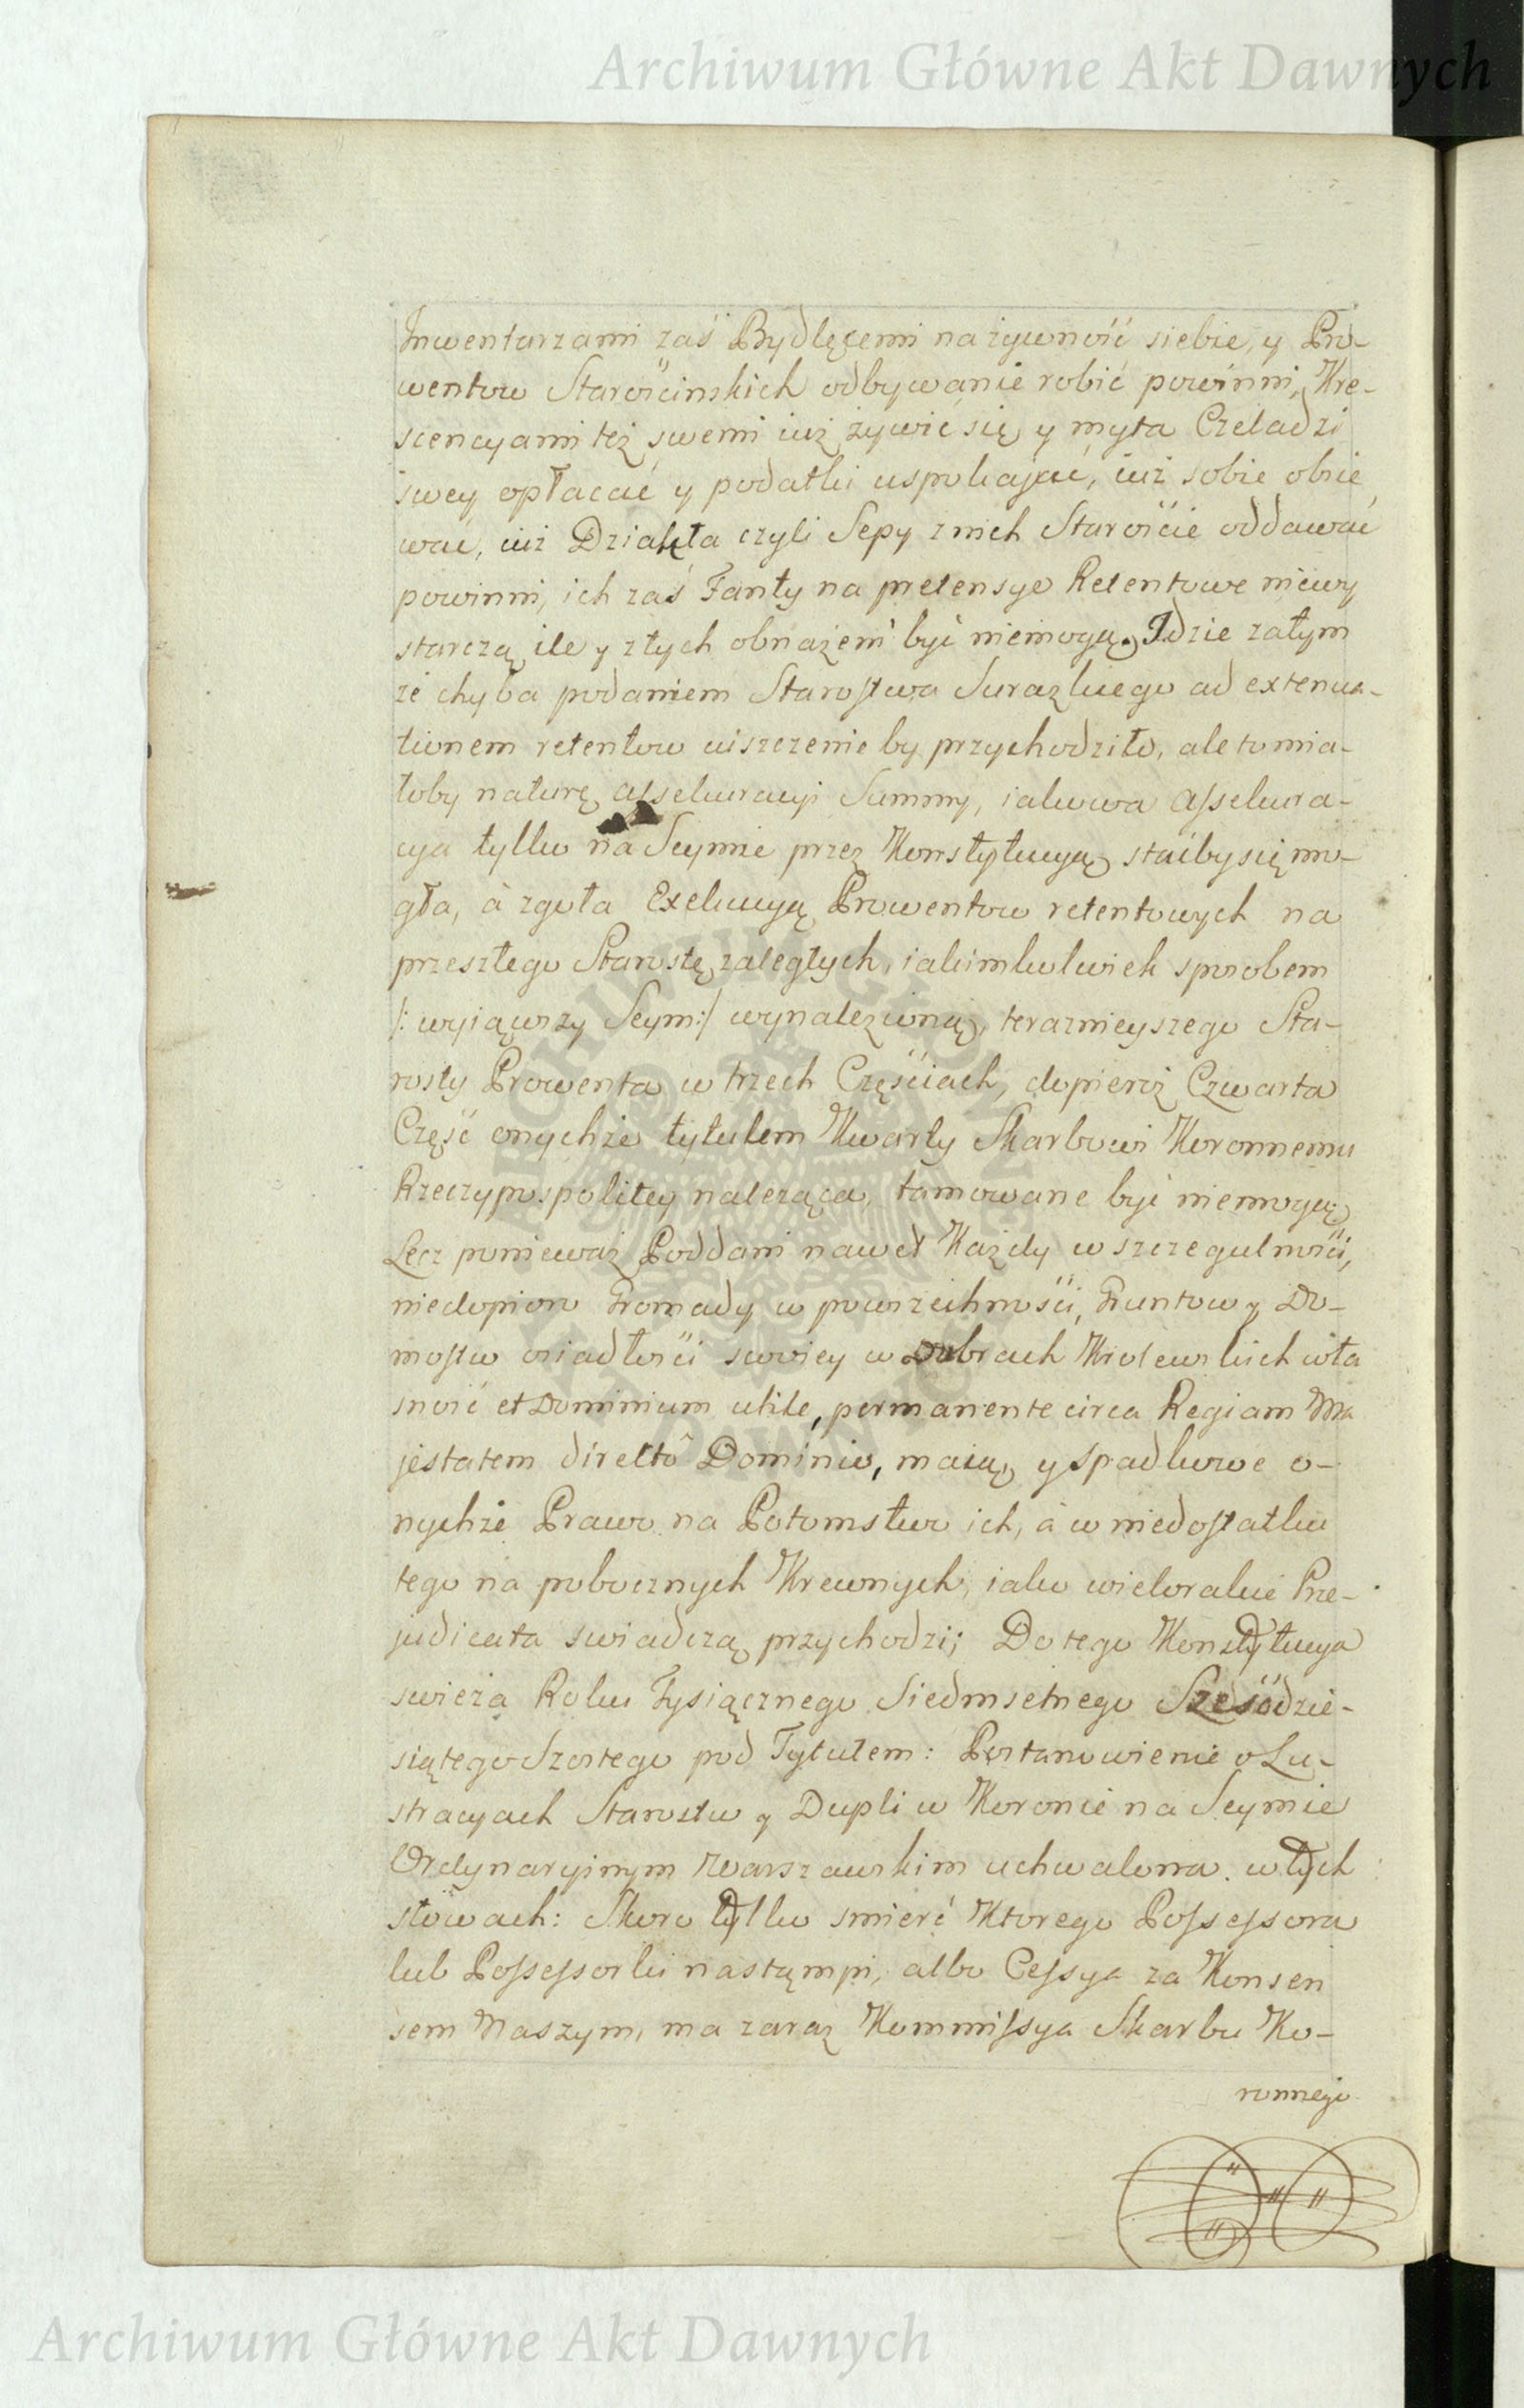 Archiwum Główne Akt Dawnych
Inwentarzami zaś Bydlęcemi na żywność siebie, y Pro-
wentow Starościnskich odbywanie robić powinni, Kre-
scencyami też swemi iuż żywić się y myta Czeladzi
swey opłacać y podatki uspokajać, iuż sobie obsie
wać, iuż Dziakła czyli Sepy z nich Staroście oddawać
powinni, ich zaś Fanty na pretensye Retentowe niewy
starczą ile y z tych obnażeni być niemogą. Idzie zatym
że chyba podaniem Starostwa Surazkiego ad extenua-
tionem retentow uiszczenie by przychodziło, ale to mia-
łoby naturę assekuracyi Summy, iakowa assekura-
cya tylko na Seymie przez Konstytucyą stać by się mo-
gła, à zgoła Exekucyą Prowentow retentowych na
przeszłego Starostę zaległych, iakimkolwiek sposobem
/: wyiąwszy Seym :/ wynalezioną, teraznieyszego Sta-
rosty Prowenta w trzech Częściach, dopieroż Czwarta
Część onychże tytułem Kwarty Skarbowi Koronnemu
Rzeczypospolitey należąca, tamowane być niemogą,
Lecz ponieważ Poddani nawet Każdy w szczegulności,
niedopiero Gromady w powszechności, Gruntow y Do-
mostw osiadłości swoiey w Dobrach Krolewskich wła
sność et Dominium utile, permanente circa Regiam Ma
jestatem direktô Dominio, maią, y spadkowe o-
nychże Prawo na Potomstwo ich, à w niedostatku
tego na pobocznych Krewnych, iako wielorakie Pre-
judicata swiadczą przychodzi; Do tego Konstytucya
swieża Roku Tysiącznego Siedmsetnego Sześćdzie-
siątego Szostego pod Tytułem: Postanowienie o Lu-
stracyach Starostw y Dupli w Koronie na Seymie
Ordynaryinym Warszawskim uchwalona. w tych
słowach: Skoro tylko smierć Ktorego Possessora
lub Possessorki nastąmpi, albo Cessya za Konsen
sem Naszym, ma zaraz Kommissya Skarbu Ko-
ronnego
Archiwum Główne Akt Dawnych